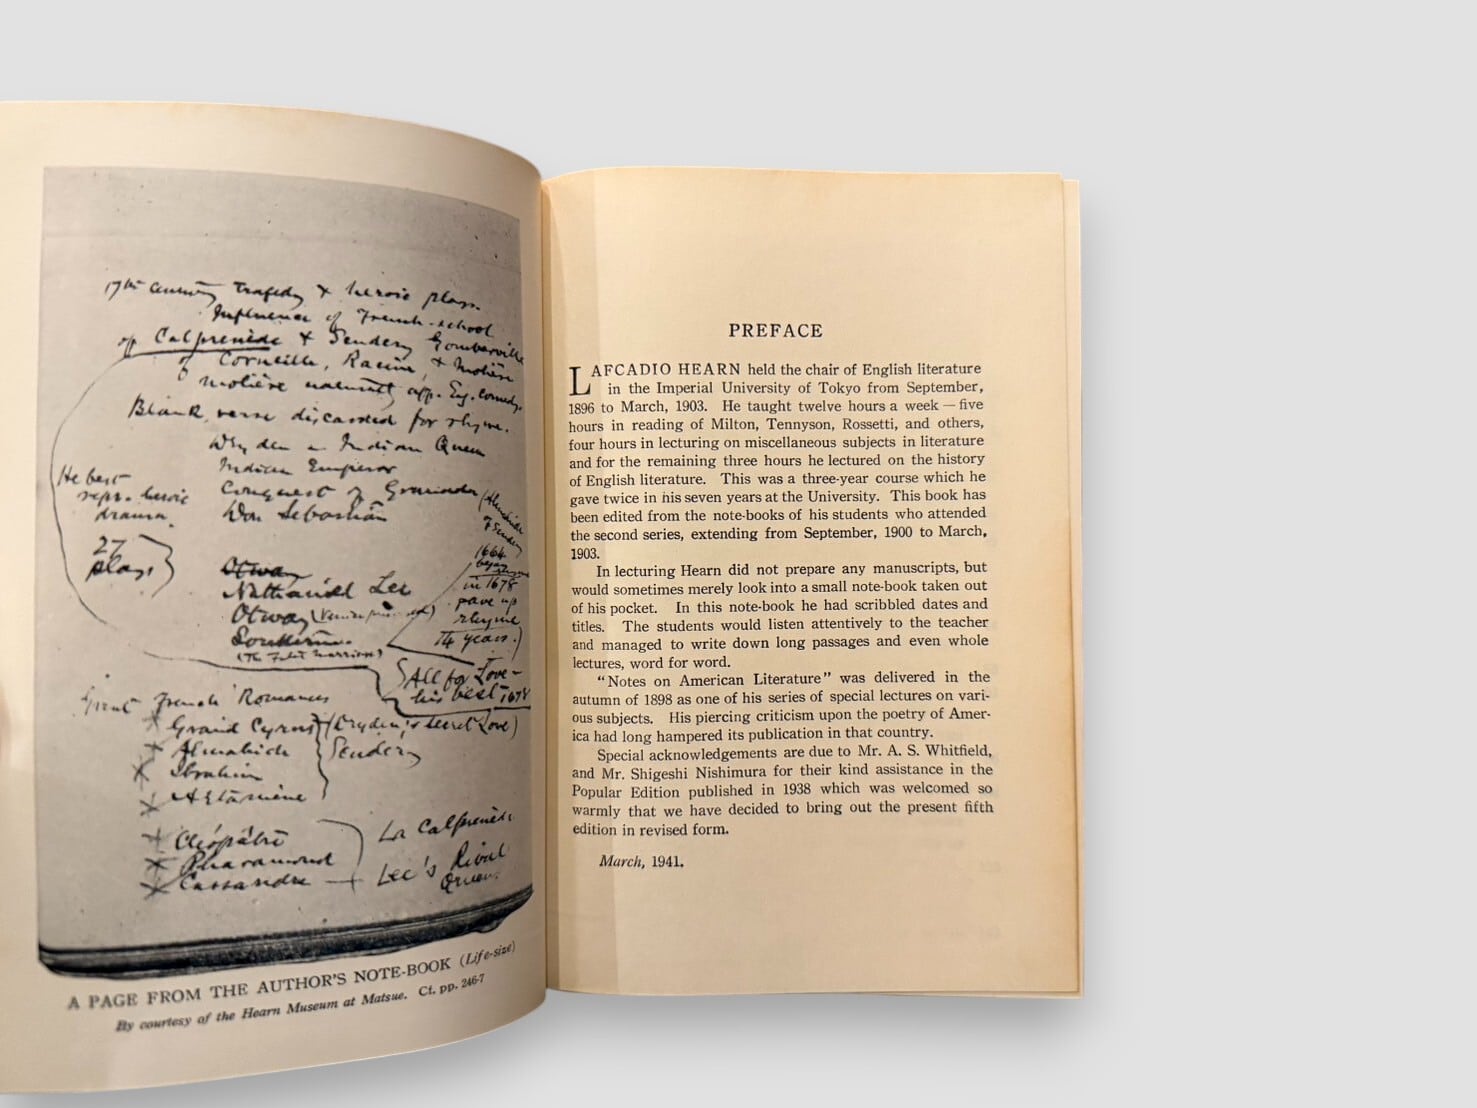 17th century tragedy & heroic plays.
Influence of French school
of Calprenède & Scudery Gomberville
of Corneille, Racine, & Molière
Molière naturally aff. Eng. comedy.
Blank verse discarded for rhyme.
Dryden Indian Queen
Indian Emperor
Conquest of Granada
Don Sebastian
He best
repr. heroic
drama.
27
plays
(Almahide
of Scudery
Otway
Nathaniel Lee
Otway (Venice preserved)
Southerne
1664
began rhyme
in 1678
gave up
rhyme
14 years.)
All for Love—
his best 1678
Great French Romances
Grand Cyrus (Dryden's Secret Love)
Almahide
Ibrahim
Scudery
Cléopâtre
Pharamond
Cassandre — Lee's Rival
Queens.
La Calprenède
A PAGE FROM THE AUTHOR'S NOTE-BOOK (Life-size)
By courtesy of the Hearn Museum at Matsue. Cf. pp. 246-7
PREFACE
LAFCADIO HEARN held the chair of English literature
in the Imperial University of Tokyo from September,
1896 to March, 1903. He taught twelve hours a week — five
hours in reading of Milton, Tennyson, Rossetti, and others,
four hours in lecturing on miscellaneous subjects in literature
and for the remaining three hours he lectured on the history
of English literature. This was a three-year course which he
gave twice in his seven years at the University. This book has
been edited from the note-books of his students who attended
the second series, extending from September, 1900 to March,
1903.
In lecturing Hearn did not prepare any manuscripts, but
would sometimes merely look into a small note-book taken out
of his pocket. In this note-book he had scribbled dates and
titles. The students would listen attentively to the teacher
and managed to write down long passages and even whole
lectures, word for word.
"Notes on American Literature" was delivered in the
autumn of 1898 as one of his series of special lectures on vari-
ous subjects. His piercing criticism upon the poetry of Amer-
ica had long hampered its publication in that country.
Special acknowledgements are due to Mr. A. S. Whitfield,
and Mr. Shigeshi Nishimura for their kind assistance in the
Popular Edition published in 1938 which was welcomed so
warmly that we have decided to bring out the present fifth
edition in revised form.
March, 1941.